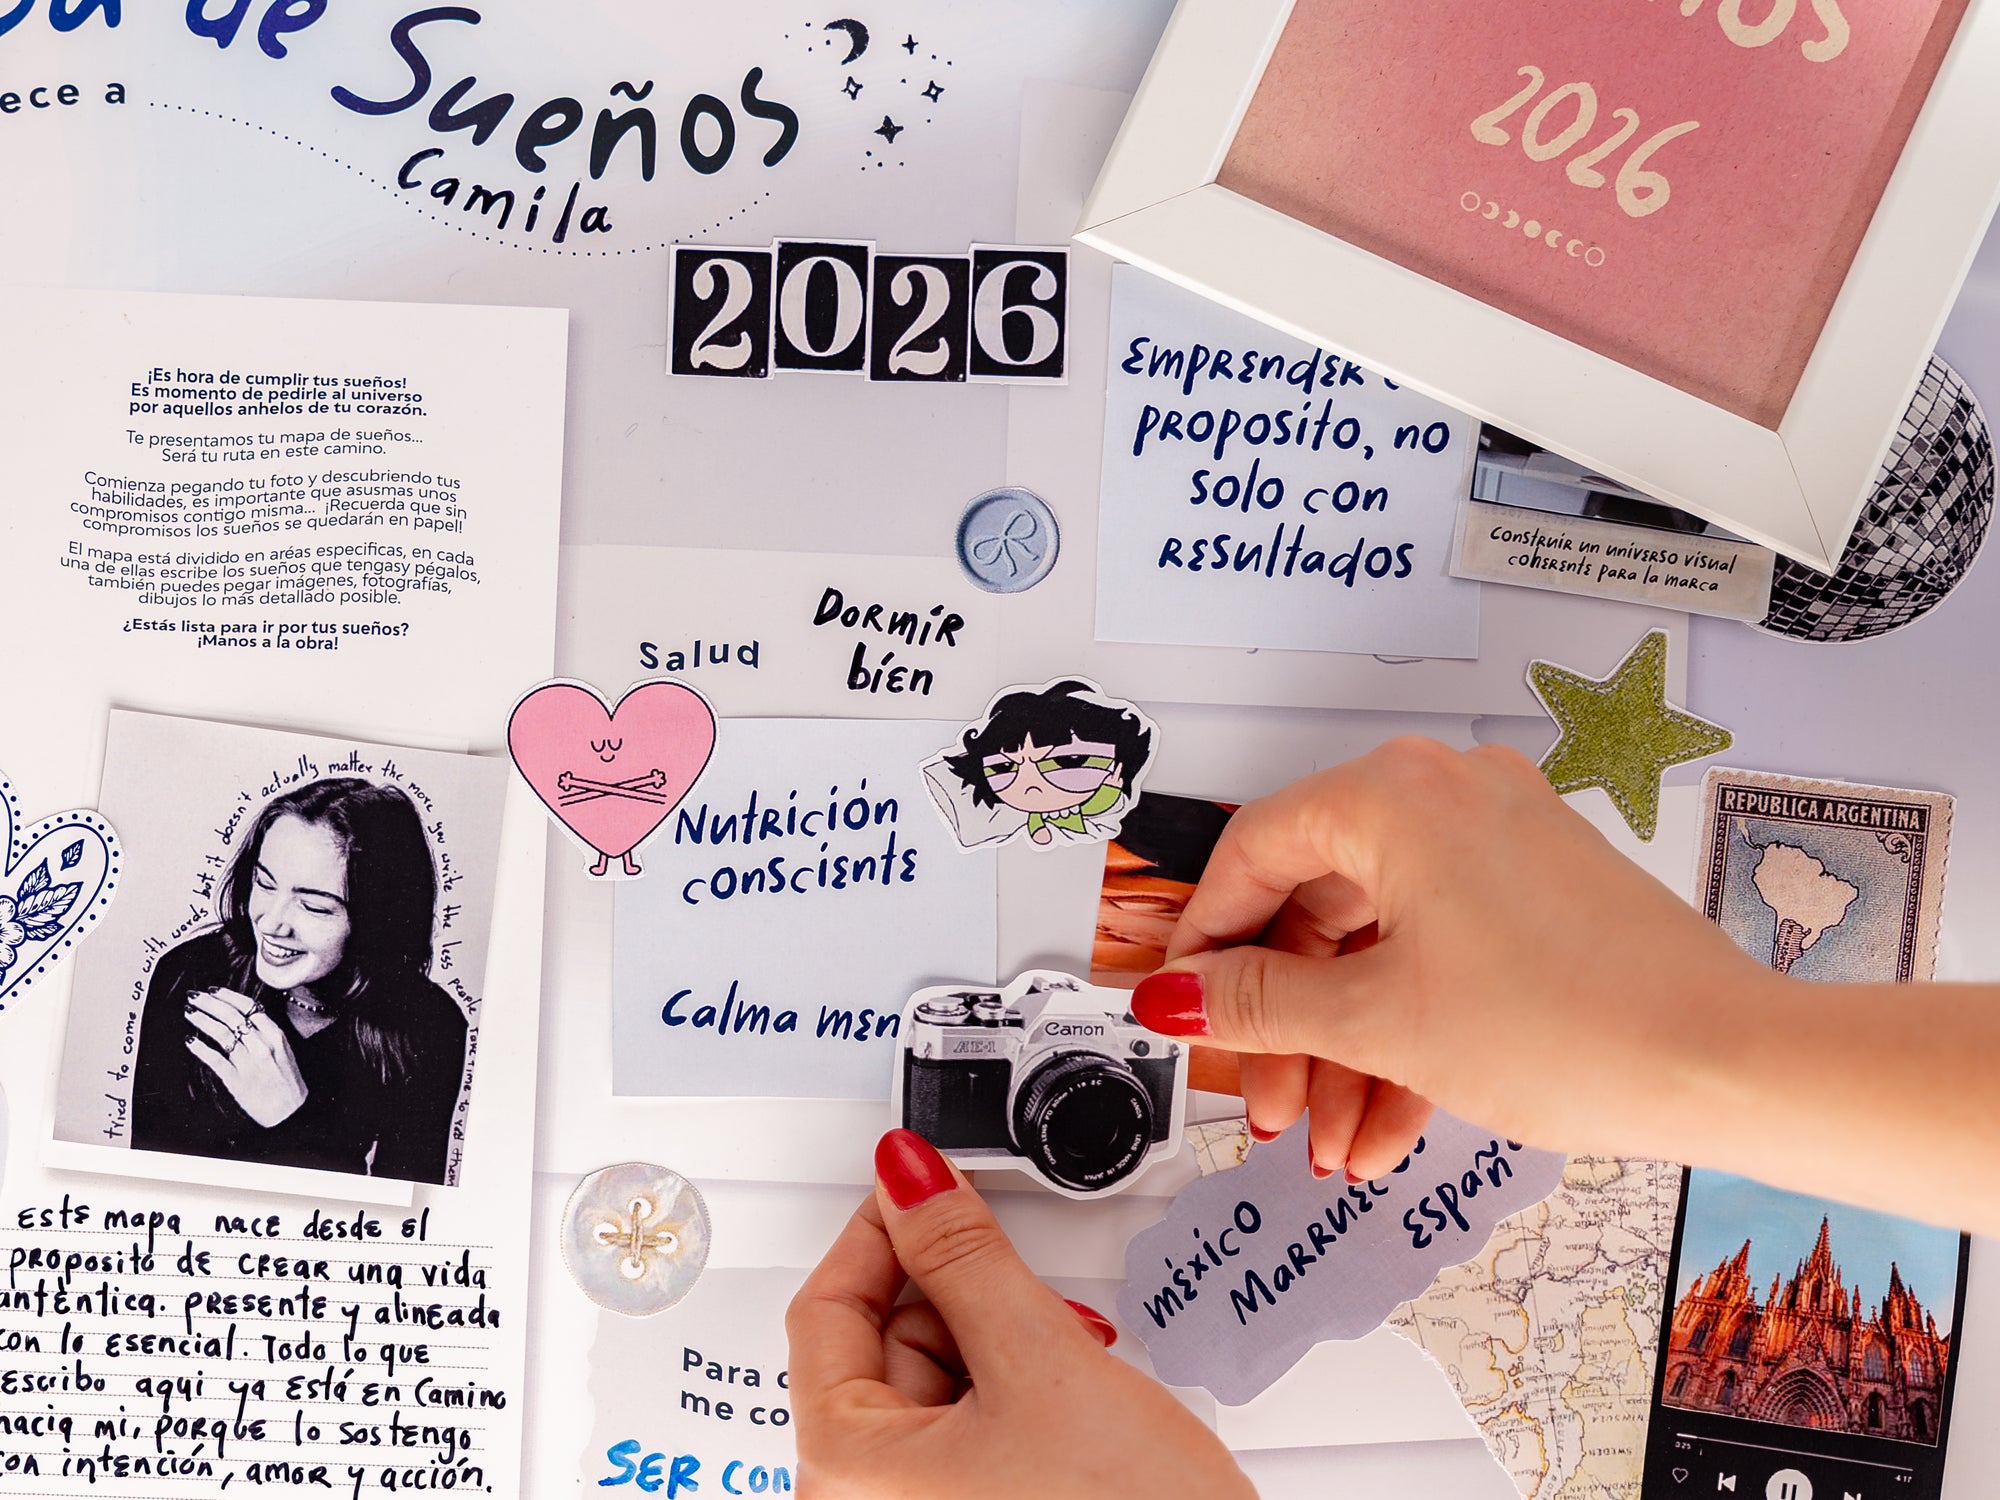 de Sueños
Camila
2026
2026
¡Es hora de cumplir tus sueños!
Es momento de pedirle al universo
por aquellos anhelos de tu corazón.
Te presentamos tu mapa de sueños...
Será tu ruta en este camino.
Comienza pegando tu foto y descubriendo tus
habilidades, es importante que asusmas unos
compromisos contigo misma... ¡Recuerda que sin
compromisos los sueños se quedarán en papel!
El mapa está dividido en aréas especificas, en cada
una de ellas escribe los sueños que tengasy pégalos,
también puedes pegar imágenes, fotografías,
dibujos lo más detallado posible.
¿Estás lista para ir por tus sueños?
¡Manos a la obra!
Emprender
proposito, no
solo con
resultados
construir un universo visual
coherente para la marca
Salud
Dormir
bien
Nutrición
consciente
Calma men
tried to come up with words but it doesn't actually matter the more you write the less people take time to
REPUBLICA ARGENTINA
Canon
AE-1
méxico
Marruecos
españ
Este mapa nace desde el
proposito de crear una vida
auténtica. presente y alineada
con lo esencial. Todo lo que
escribo aqui ya está en Camino
hacia mi, porque lo sostengo
con intención, amor y acción.
Para
me co
SER con